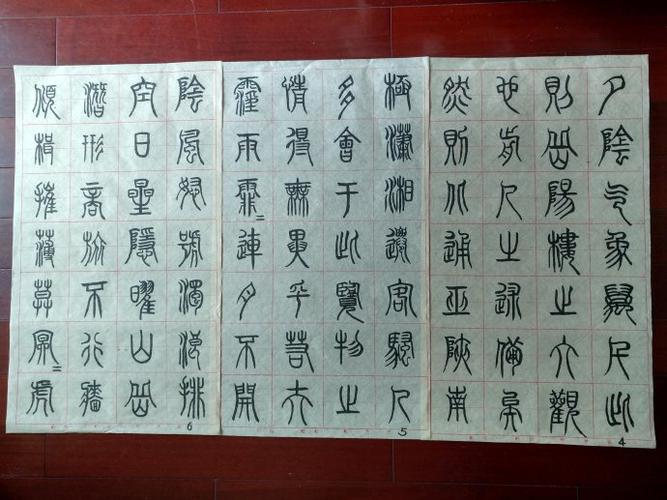 夕陰气象萬千此
則岳陽樓之大觀
也前人之述備矣
然則北通巫峽南
4
極瀟湘遷客騷人
多會于此覽物之
情得無異乎若夫
霪雨霏〻連月不開
5
陰風怒號濁浪排
空日星隱曜山岳
潛形商旅不行檣
傾楫摧薄莫冥〻虎
6